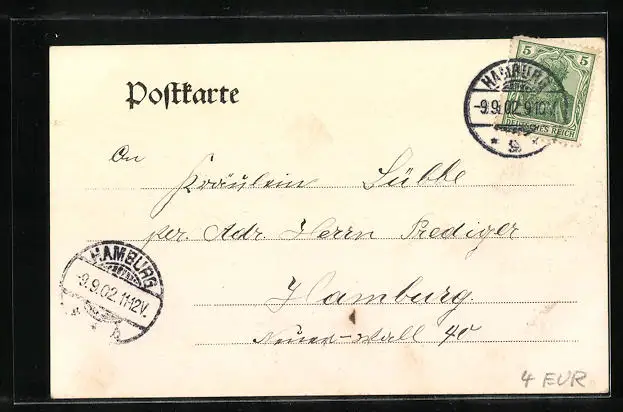 Postkarte
5 5
DEUTSCHES REICH
HAMBURG
-9.9.02. 9-10V.
An
Fräulein Lübke
per. Adr. Herrn Prediger
Hamburg.
Neuer-wall 40
HAMBURG
-9.9.02. 11-12V.
4 EUR